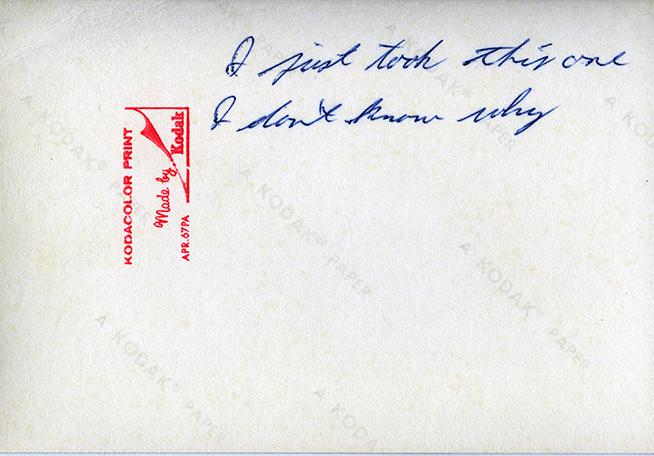 I just took this one
I don't know why
KODACOLOR PRINT
Made by Kodak
APR.67PA
A KODAK® PAPER
A KODAK® PAPER
A KODAK® PAPER
A KODAK® PAPER
A KODAK